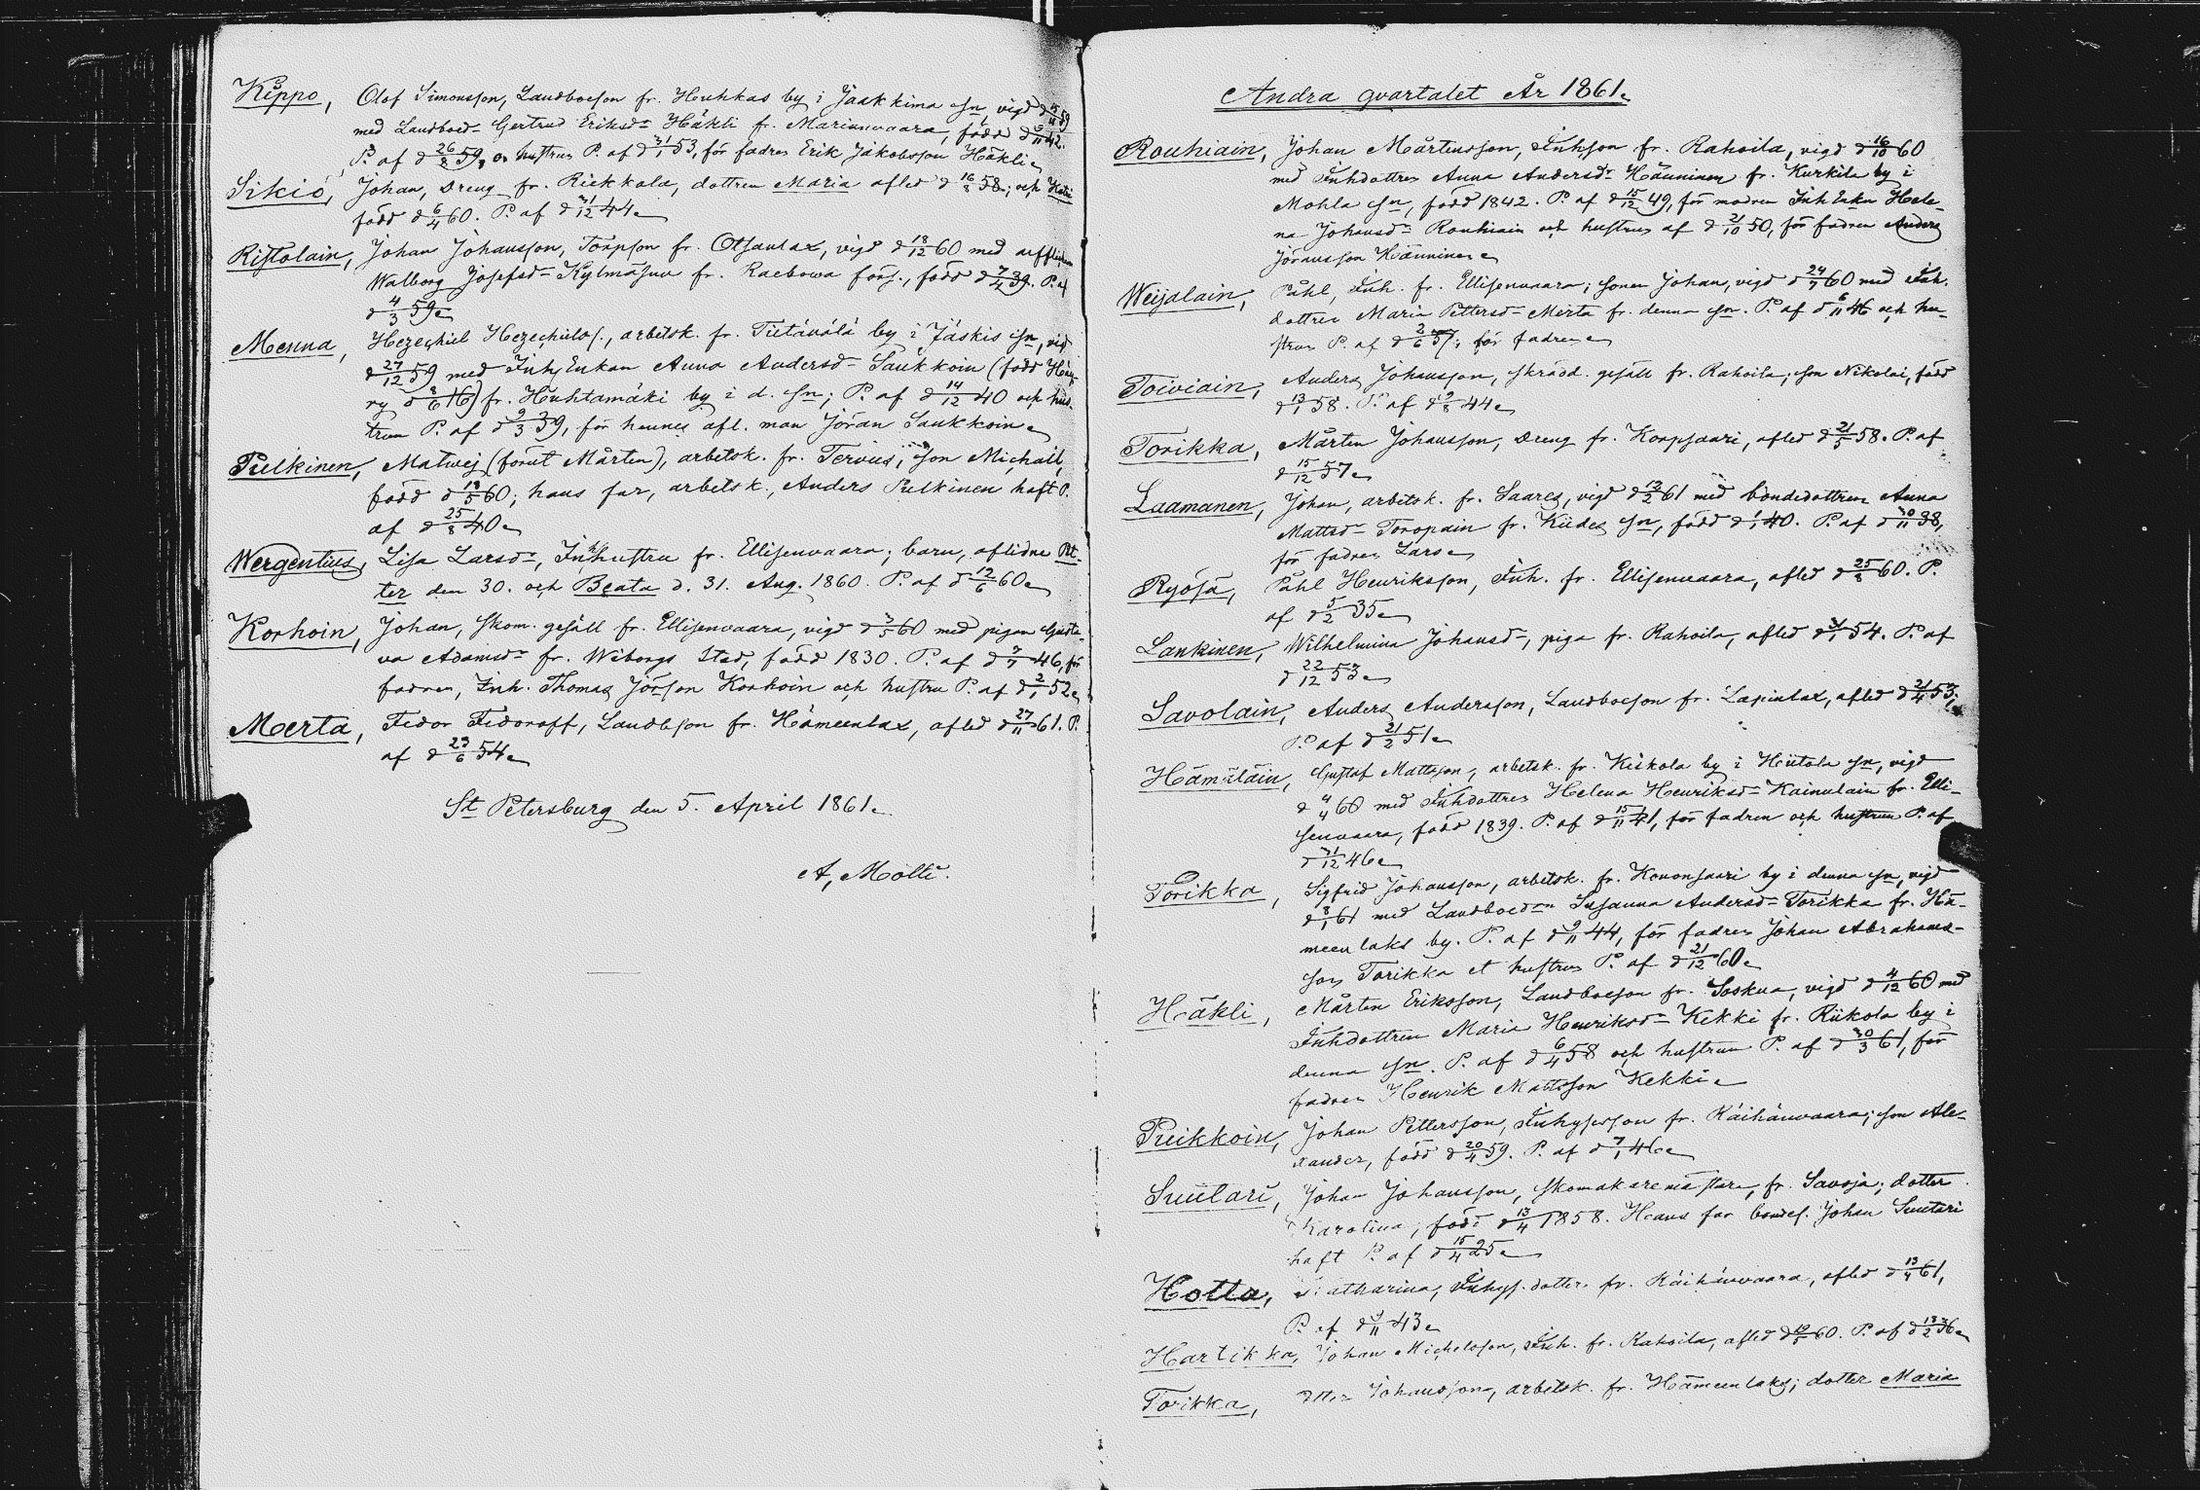 Kippo, Olof Simonsson, Landboeson fr. Huhkas by i Jaakkima sn, vigd d
med Landboed:r Gertrud Eriksd:r Häkli fr. Mariunvaara, född d 42.
P. af d 26/8 59, o. hustrun P. af d 31/1 53, för fadren Erik Jakobsson Häkli
Sikiö, Johan, Dreng fr. Riekkala, dottren Maria afled d 16/8 58; och
född d 6/4 60. P. af d 31/12 44
Ristolain, Johan Johansson, Torpson fr. Otsanlax, vigd d 18/12 60 med
Walborg Josefsd:r Kylmäsuu fr. Raebowa förs., född d 7/4 39. P. af
d 4/3 59
Menna, Hezechiel Hezechiels s., arbetsk. fr. Tiitävälä by i Jäskis sn, vigd
d 27/12 59 med Inh Enkan Anna Andersd:r Saukkoin (född
ry d 8/6 16) fr. Huhtamäki by i d. sn; P. af d 14/12 40 och hus-
trun P. af d 9/3 39, för hennes afl. man Jöran Saukkoin
Pulkinen, Matvej (förut Mårten), arbetsk. fr. Tervus; son Michail,
född d 19/5 60; hans far, arbetsk., Anders Pulkinen haft P.
af d 25/8 40
Wergentius, Lisa Larsd:r, Inhhustru fr. Ellisenvaara; barn, aflidne Pet-
ter den 30. och Beata d. 31. Aug. 1860. P. af d 12/6 60
Korhoin, Johan, skom. gesäll fr. Ellisenvaara, vigd d 3/5 60 med pigan Gusta-
va Adamsd:r fr. Wiborgs Stad, född 1830. P. af d 7/7 46, för
fadren, Inh. Thomas Jörsson Korhoin och hustru P. af d 2/1 52
Merta, Fedor Fedoroff, Landbson fr. Hämeenlax, afled d 27/11 61. P.
af d 23/6 54
St Petersburg den 5. April 1861
A, Molti
Andra qvartalet År 1861
Rouhiain, Johan Mårtensson, Inhson fr. Rahoila, vigd d 16/10 60
med Inhdottren Anna Andersd:r Hänninen fr. Kurkila by i
Mohla sn, född 1842. P. af d 15/12 49, för modren Inh Enkn Hele-
na Johansd:r Rouhiain och hustrun af d 21/10 50, för fadren Anders
Jöransson Hänninen
Weijalain, Påhl, Inh. fr. Ellisenvaara; sonen Johan, vigd d 24/7 60 med Inh.
dottren Maria Pettersd:r Merta fr. denna sn. P. af d 6/11 46 och hu-
strun P. af d 2/6 57, för fadren
Toiviain, Anders Johansson, skrädd. gesäll fr. Rahoila; son Nikolai, född
d 13/1 58. P. af d 9/8 44
Torikka, Mårten Johansson, Dreng fr. Korpsaari, afled d 21/5 58. P. af
d 15/12 57
Laamanen, Johan, arbetsk. fr. Saares, vigd d 12/2 61 med bondedottren Anna
Mattsd:r Toropain fr. Kides sn, född d 40. P. af d 30/11 38,
för fadren Lars
Ryösä, Påhl Henriksson, Inh. fr. Ellisenvaara, afled d 25/8 60. P.
af d 5/2 35
Lankinen, Wilhelmina Johansd:r, piga fr. Rahoila, afled d 54. P. af
d 22/12 53
Savolain, Anders Andersson, Landboeson fr. Lapinlax, afled d 21/4 53;
P. af d 21/2 51
Hämäläin, Gustaf Mattsson, arbetsk. fr. Kiiskola by i Hiitola sn, vigd
d 4/4 60 med Inhdottren Helena Henriksd:r Kainulain fr. Elli-
senvaara, född 1839. P. af d 15/11 41, för fadren och hustrun P. af
d 31/12 46
Torikka, Sigfrid Johansson, arbetsk. fr. Kovonsaari by i denna sn, vigd
d 8/1 61 med Landboed:r Susanna Andersd:r Torikka fr. Hä-
meenlaks by. P. af d 9/11 44, för fadren Johan Abrahams-
son Torikka et hustrun P. af d 21/12 60
Häkli, Mårten Eriksson, Landboeson fr. Soskua, vigd d 4/12 60 med
Inhdottren Maria Henriksd:r Kekki fr. Riikola by i
denna sn. P. af d 6/4 58 och hustrun P. af d 30/3 61, för
fadren Henrik Mattsson Kekki
Puikkoin, Johan Pettersson, Inhysesson fr. Räihänvaara; son Ale-
xander, född d 20/4 59. P. af d 7/1 46
Suutari, Johan Johansson, skomakaremästare, fr. Savoja; dotter
Karolina, född d 13/4 1858. Hans far bondes. Johan Suutari
haft P. af d 15/4 25
Hotta, Katharina, Inhys. dotter fr. Räihänvaara, afled d 13/4 61,
P. af d 43
Hartikka, Johan Michelsson, Inh. fr. Rahoila, afled d 60. P. af d 36
Torikka, Petter Johansson, arbetsk. fr. Hämeenlaks; dotter Maria